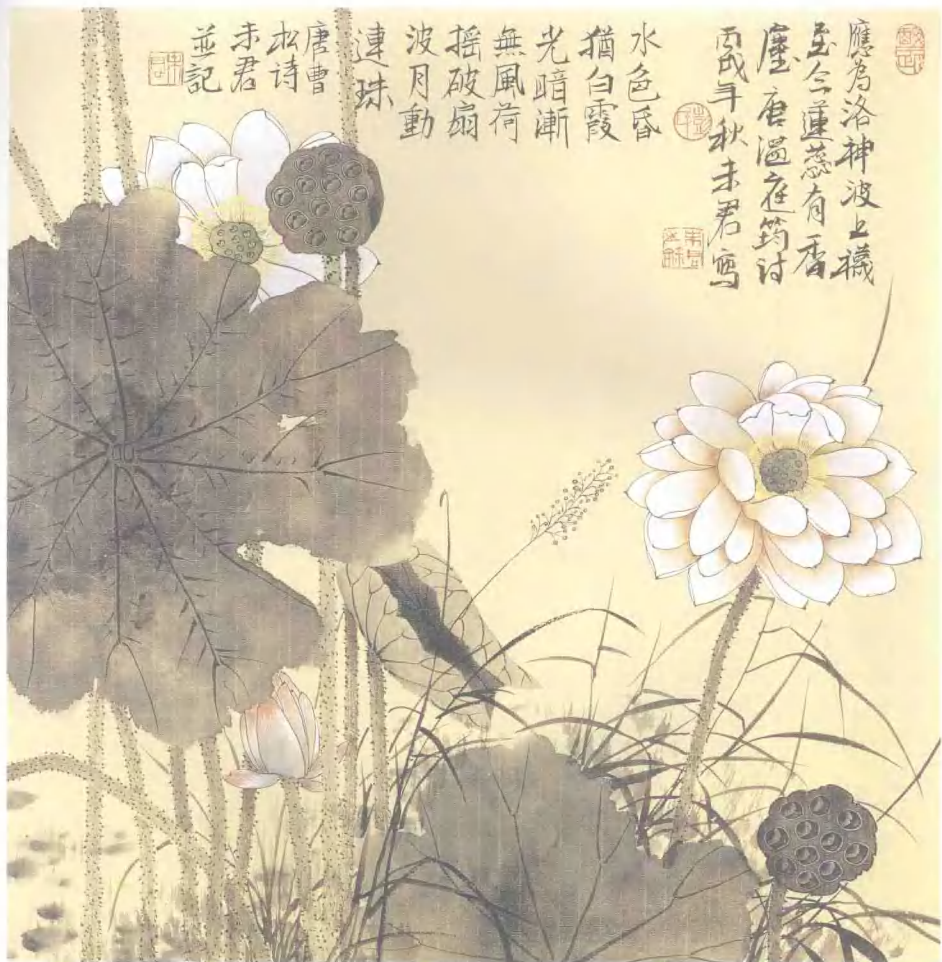 應為洛神波上襪
至今蓮蕊有香
塵 唐溫庭筠詩
丙戌年秋未君寫
水色昏
猶白霞
光暗漸
無風荷
搖破扇
波月動
連珠
唐曹
松诗
未君
並記